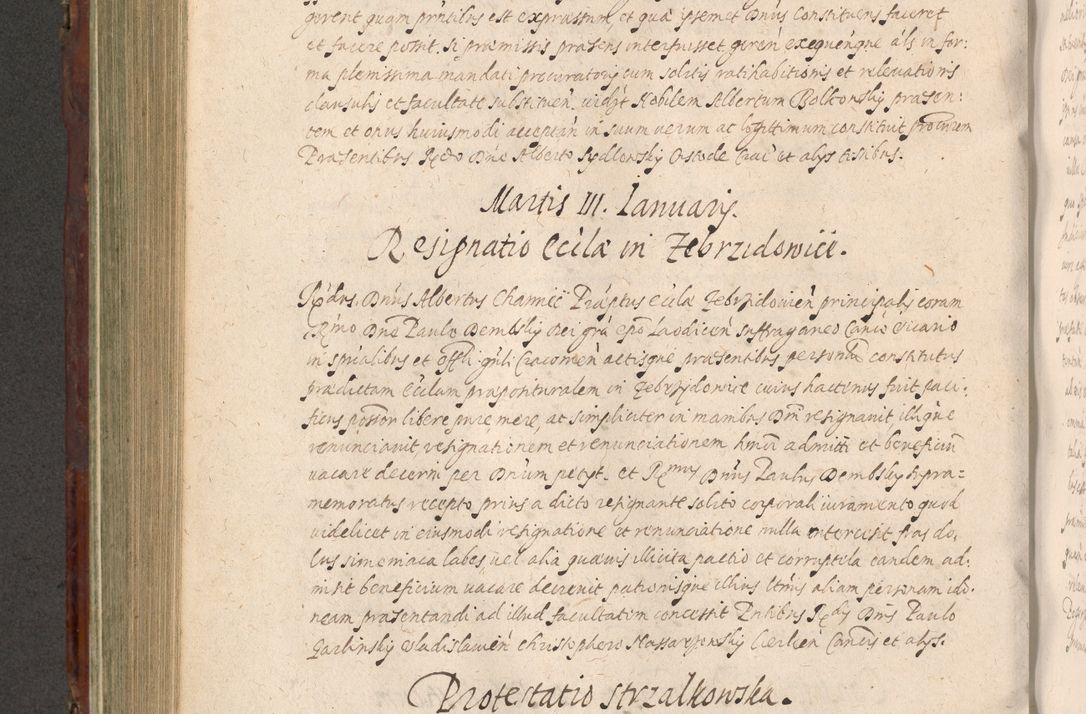 gerent quam prntibus est expræssum et qua ipsemet Dnus Constituens faceret
et facere possit. si præmissis præsens interfuisset geren exequenque als in for:
ma plenissima mandati procuratorij cum solitis ratihabitionis et relevationis
clausulis et facultate substituen. vidzt Nobilem Albertum Bolkonsky præsen:
tem et onus huiusmodi acceptan in suum verum ac legittimum constituit procurem
Præsentibus Rdo Dno Alberto Sydlovsky Custode et alys testibus.
Martis III. Ianuarij.
Resignatio Ecclæ in Zebrzidowice.
Rdus. Dnus Albertus Præptus Ecclæ Zebrzidovien principalis coram
Rmo Dno Paulo Dembsky Dei gra epo Laodicen Suffraganeo Canco Vicario
in spualibus et offli gnli Cracovien actisque præsentibus personar constitutus
prædictam Ecclam præposituralem in Zebrzydowice cuius hactenus fuit paci:
ficus possor libere pure mere, ac simpliciter in manibus Dni resignavit, illique
renunciavit resignationem et renunciationem hmoi admitti et beneficiu
vacare decerni per Dnum petyt. et Rmus Dnus Paulus Dembsky supra=
memoratus recepto prius a dicto resignante solito corporali iuramento quod
videlicet in eiusmodi resignatione et renunciatione nulla intercessit fras do,
lus simoniaca labes, vel alia quævis illicita pactio et corruptela eandem ad:
misit beneficium vacare decrevit patronisque illius ltmis aliam personam ido.
neam præsentandi ad illud facultatem concessit Pntibus Rdis Dnis Paulo
Garlinsky Vladislavien Christophero Cancis et alys.
Protestatio Strzalkowska.